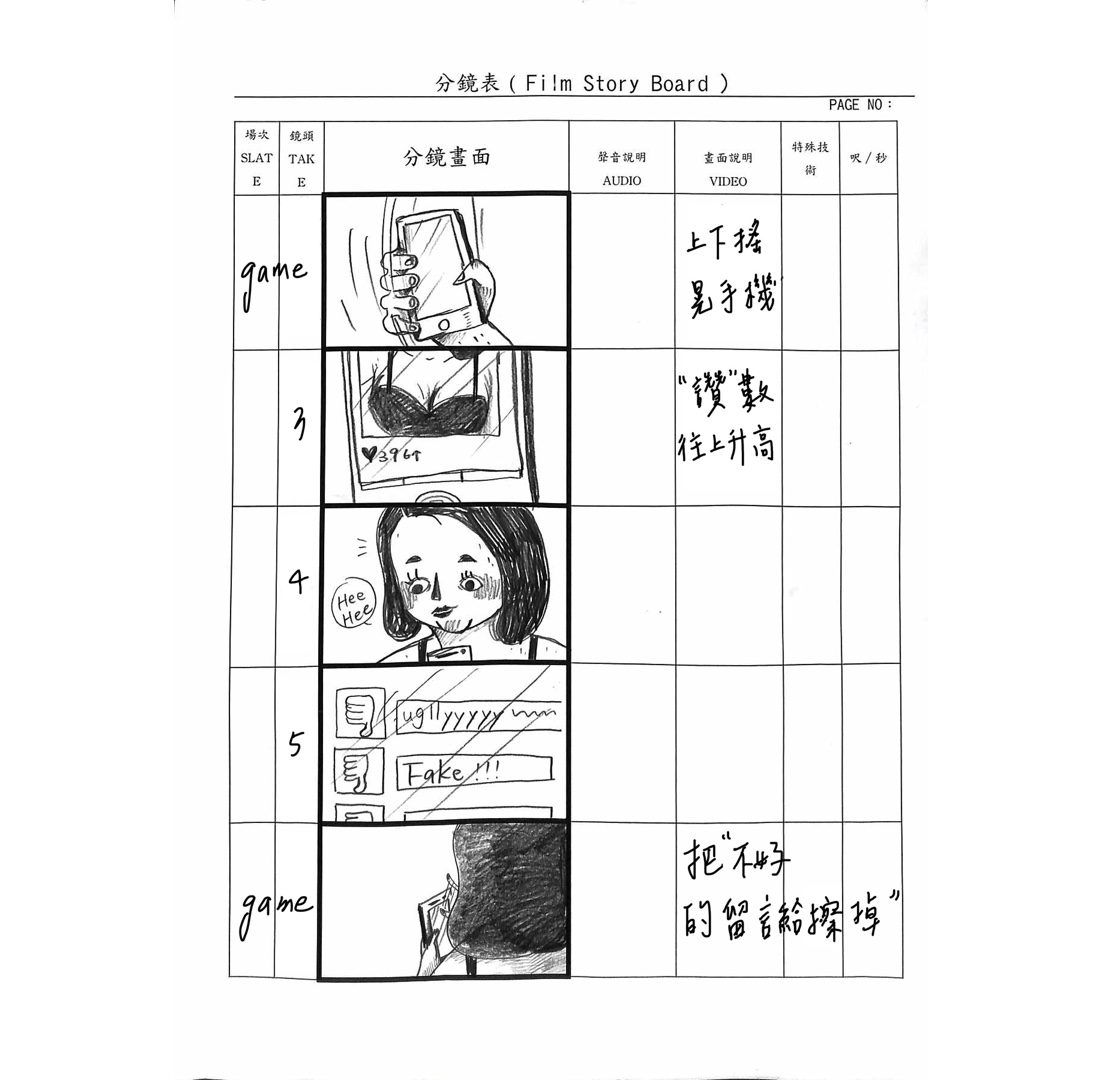 分鏡表 ( Film Story Board )
PAGE NO：
場次
SLAT
E
鏡頭
TAK
E
分鏡畫面
聲音說明
AUDIO
畫面說明
VIDEO
特殊技
術
呎/秒
game
上下搖
晃手機
3
♥396↑
“讚”數
往上升高
4
Hee
Hee
5
ugllyyyyy
Fake !!!
game
把“不好
的留言給擦掉”